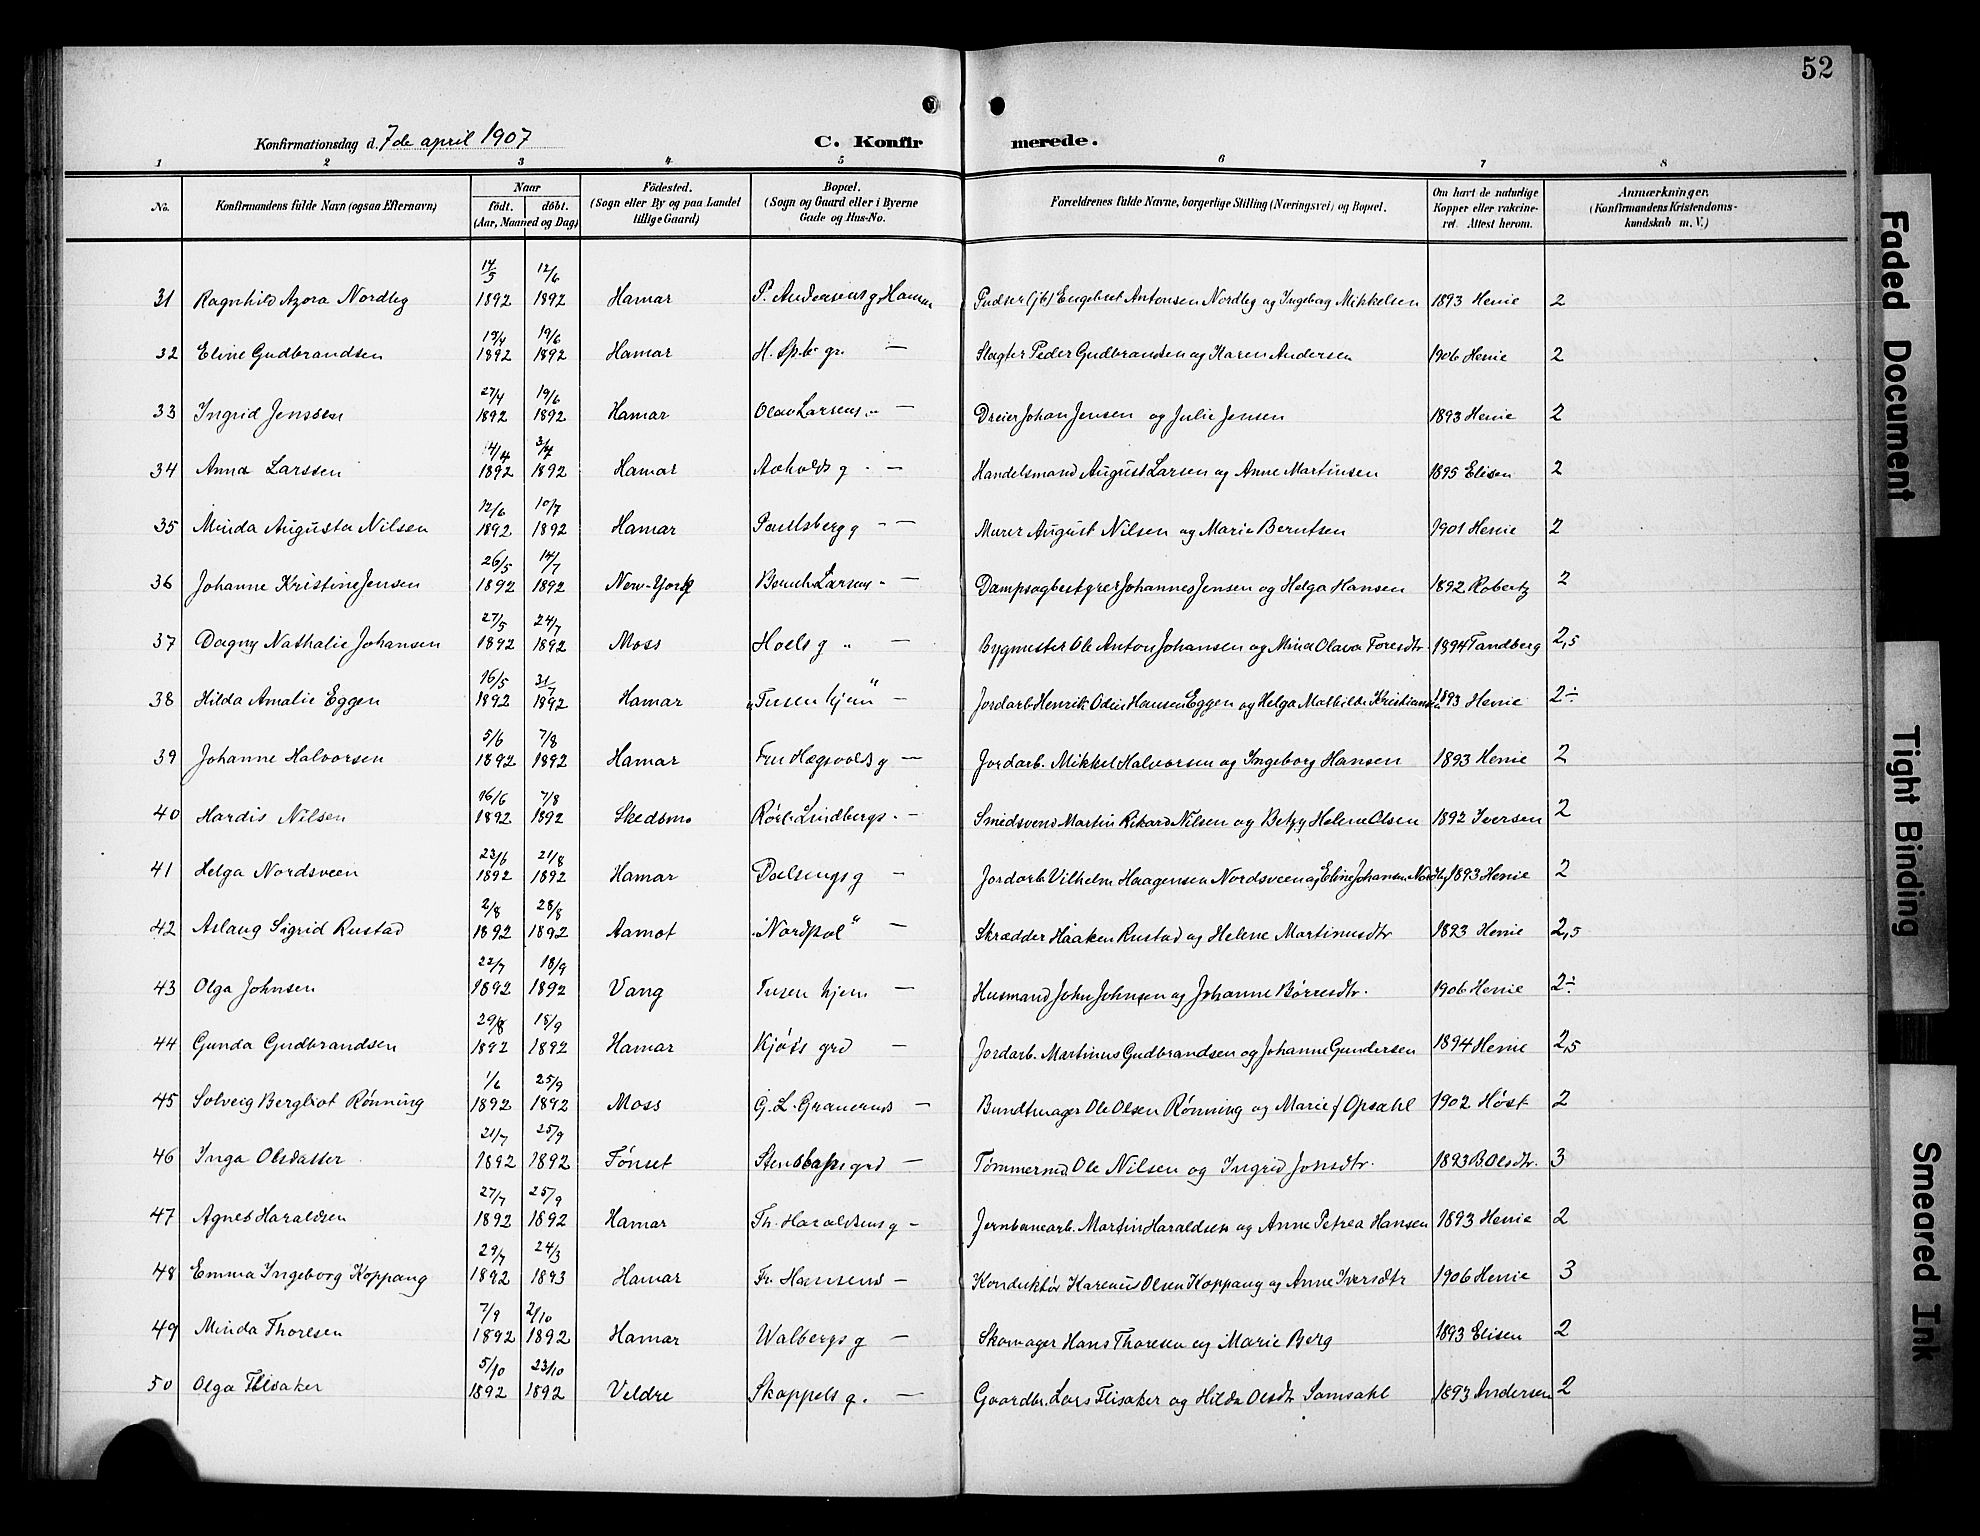 52
Konfirmationsdag d. 7de april 1907 C. Konfirmerede.
1 2 3 4 5 6 7 8
No. Konfirmandens fulde Navn (ogsaa Efternavn) Naar født. døbt. (Aar, Maaned og Dag) Fødested. (Sogn eller By og paa Landet tillige Gaard) Bopæl. (Sogn og Gaard eller i Byerne Gade og Hus-No. Forældrenes fulde Navne, borgerlige Stilling (Næringsvei) og Bopæl. Om havt de naturlige Kopper eller vakcineret. Attest herom. Anmærkninger. (Konfirmandens Kristendomskundskab m. V.)
31 Ragnhild Azora Nordby 14/5 1892 12/6 1892 Hamar P. Andersens g. Hamar Pudser (jb) Engebret Antonsen Nordby og Ingeborg Mikkelsen 1893 Henie 2
32 Eline Gudbrandsen 19/4 1892 19/6 1892 Hamar H. Sp.b. gr. — Slagter Peder Gudbrandsen og Karen Andersen 1906 Henie 2
33 Ingrid Jenssen 27/4 1892 19/6 1892 Hamar Olav Larsens „ — Dreier Johan Jensen og Julie Jensen 1893 Henie 2
34 Anna Larssen 4/4 1892 3/7 1892 Hamar g. — Handelsmand August Larsen og Anne Martinsen 1895 Elisen 2
35 Minda Augusta Nilsen 12/6 1892 10/7 1892 Hamar Poulsberg g — Murer August Nilsen og Marie Berntsen 1901 Henie 2
36 Johanne Kristine Jensen 26/5 1892 14/7 1892 New-York Larsens — Dampsagbestyrer Johannes Jensen og Helga Hansen 1892 Robertz 2
37 Dagny Nathalie Johansen 27/5 1892 24/7 1892 Moss Hoels g „ — Bygmester Ole Anton Johansen og Mina Olava Toresdtr 1894 Tandberg 2,5
38 Hilda Amalie Eggen 16/5 1892 31/7 1892 Hamar „Tusen hjem“ — Jordarb. Henrik Odin Hansen Eggen og Helga Mathilde Kristiansen 1893 Henie 2÷
39 Johanne Halvorsen 5/6 1892 7/8 1892 Hamar Fru Hægsvolds g — Jordarb. Mikkel Halvorsen og Ingeborg Hansen 1893 Henie 2
40 Hardis Nilsen 16/6 1892 7/8 1892 Skedsmo Rørl. Lindbergs. — Smedsvend Martin Rikard Nilsen og Betzy Helene Olsen 1892 Iversen 2
41 Helga Nordsveen 23/6 1892 21/8 1892 Hamar g — Jordarb. Vilhelm Haagensen Nordsveen og Eline Johansen Nordby 1893 Henie 2
42 Aslaug Sigrid Rustad 2/8 1892 28/8 1892 Aamot „Nordpol“ — Skrædder Haaken Rustad og Helene Martinusdtr 1893 Henie 2,5
43 Olga Johnsen 22/7 1892 18/9 1892 Vang Tusen hjem — Husmand John Johnsen og Johanne Børresdtr. 1906 Henie 2÷
44 Gunda Gudbrandsen 29/8 1892 18/9 1892 Hamar Kjøss grd — Jordarb. Martinus Gudbrandsen og Johanne Gundersen 1894 Henie 2,5
45 Solveig Bergliot Rønning 1/6 1892 25/9 1892 Moss G. L. Graneruds — Bundtmager Ole Olsen Rønning og Marie f Opsahl 1902 Høst 2
46 Inga Olsdatter 21/7 1892 25/9 1892 Tønset grd — Tømmermd. Ole Nilsen og Ingrid Jonsdtr. 1893 B. Olsdtr. 3
47 Agnes Haraldsen 27/7 1892 25/9 1892 Hamar Th. Haraldsens g — Jernbanearb. Martin Haraldsen og Anne Petrea Hansen 1893 Henie 2
48 Emma Ingeborg Koppang 29/7 1892 24/3 1893 Hamar Fr. Hansens — Konduktør Karenus Olsen Koppang og Anne Iversdtr 1906 Henie 3
49 Minda Thoresen 7/9 1892 2/10 1892 Hamar Walbergs g — Skomager Hans Thoresen og Marie Berg 1893 Elisen 2
50 Olga Flisaker 5/10 1892 23/10 1892 Veldre Skappels g. — Gaardbr. Lars Flisaker og Hilda Olsdtr Samsahl 1893 Andersen 2
Faded Document
Tight Binding
Smeared Ink